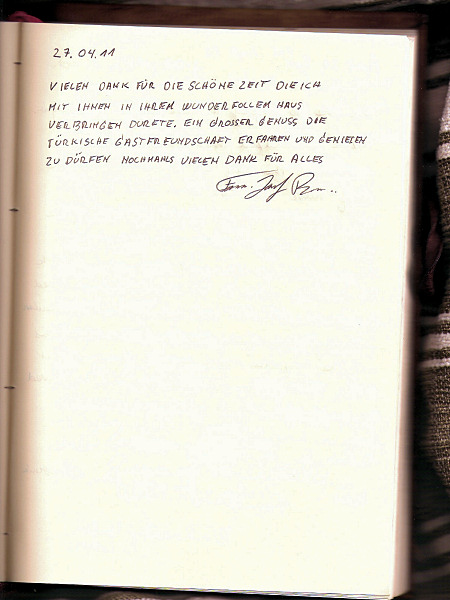 27.04.11
VIELEN DANK FÜR DIE SCHÖNE ZEIT DIE ICH
MIT IHNEN IN IHREM WUNDERFOLLEM HAUS
VERBRINGEN DURFTE. EIN GROSSER GENUSS DIE
TÜRKISCHE GASTFREUNDSCHAFT ERFAHREN UND GENIEßEN
ZU DÜRFEN NOCHMAHLS VIELEN DANK FÜR ALLES
Josef